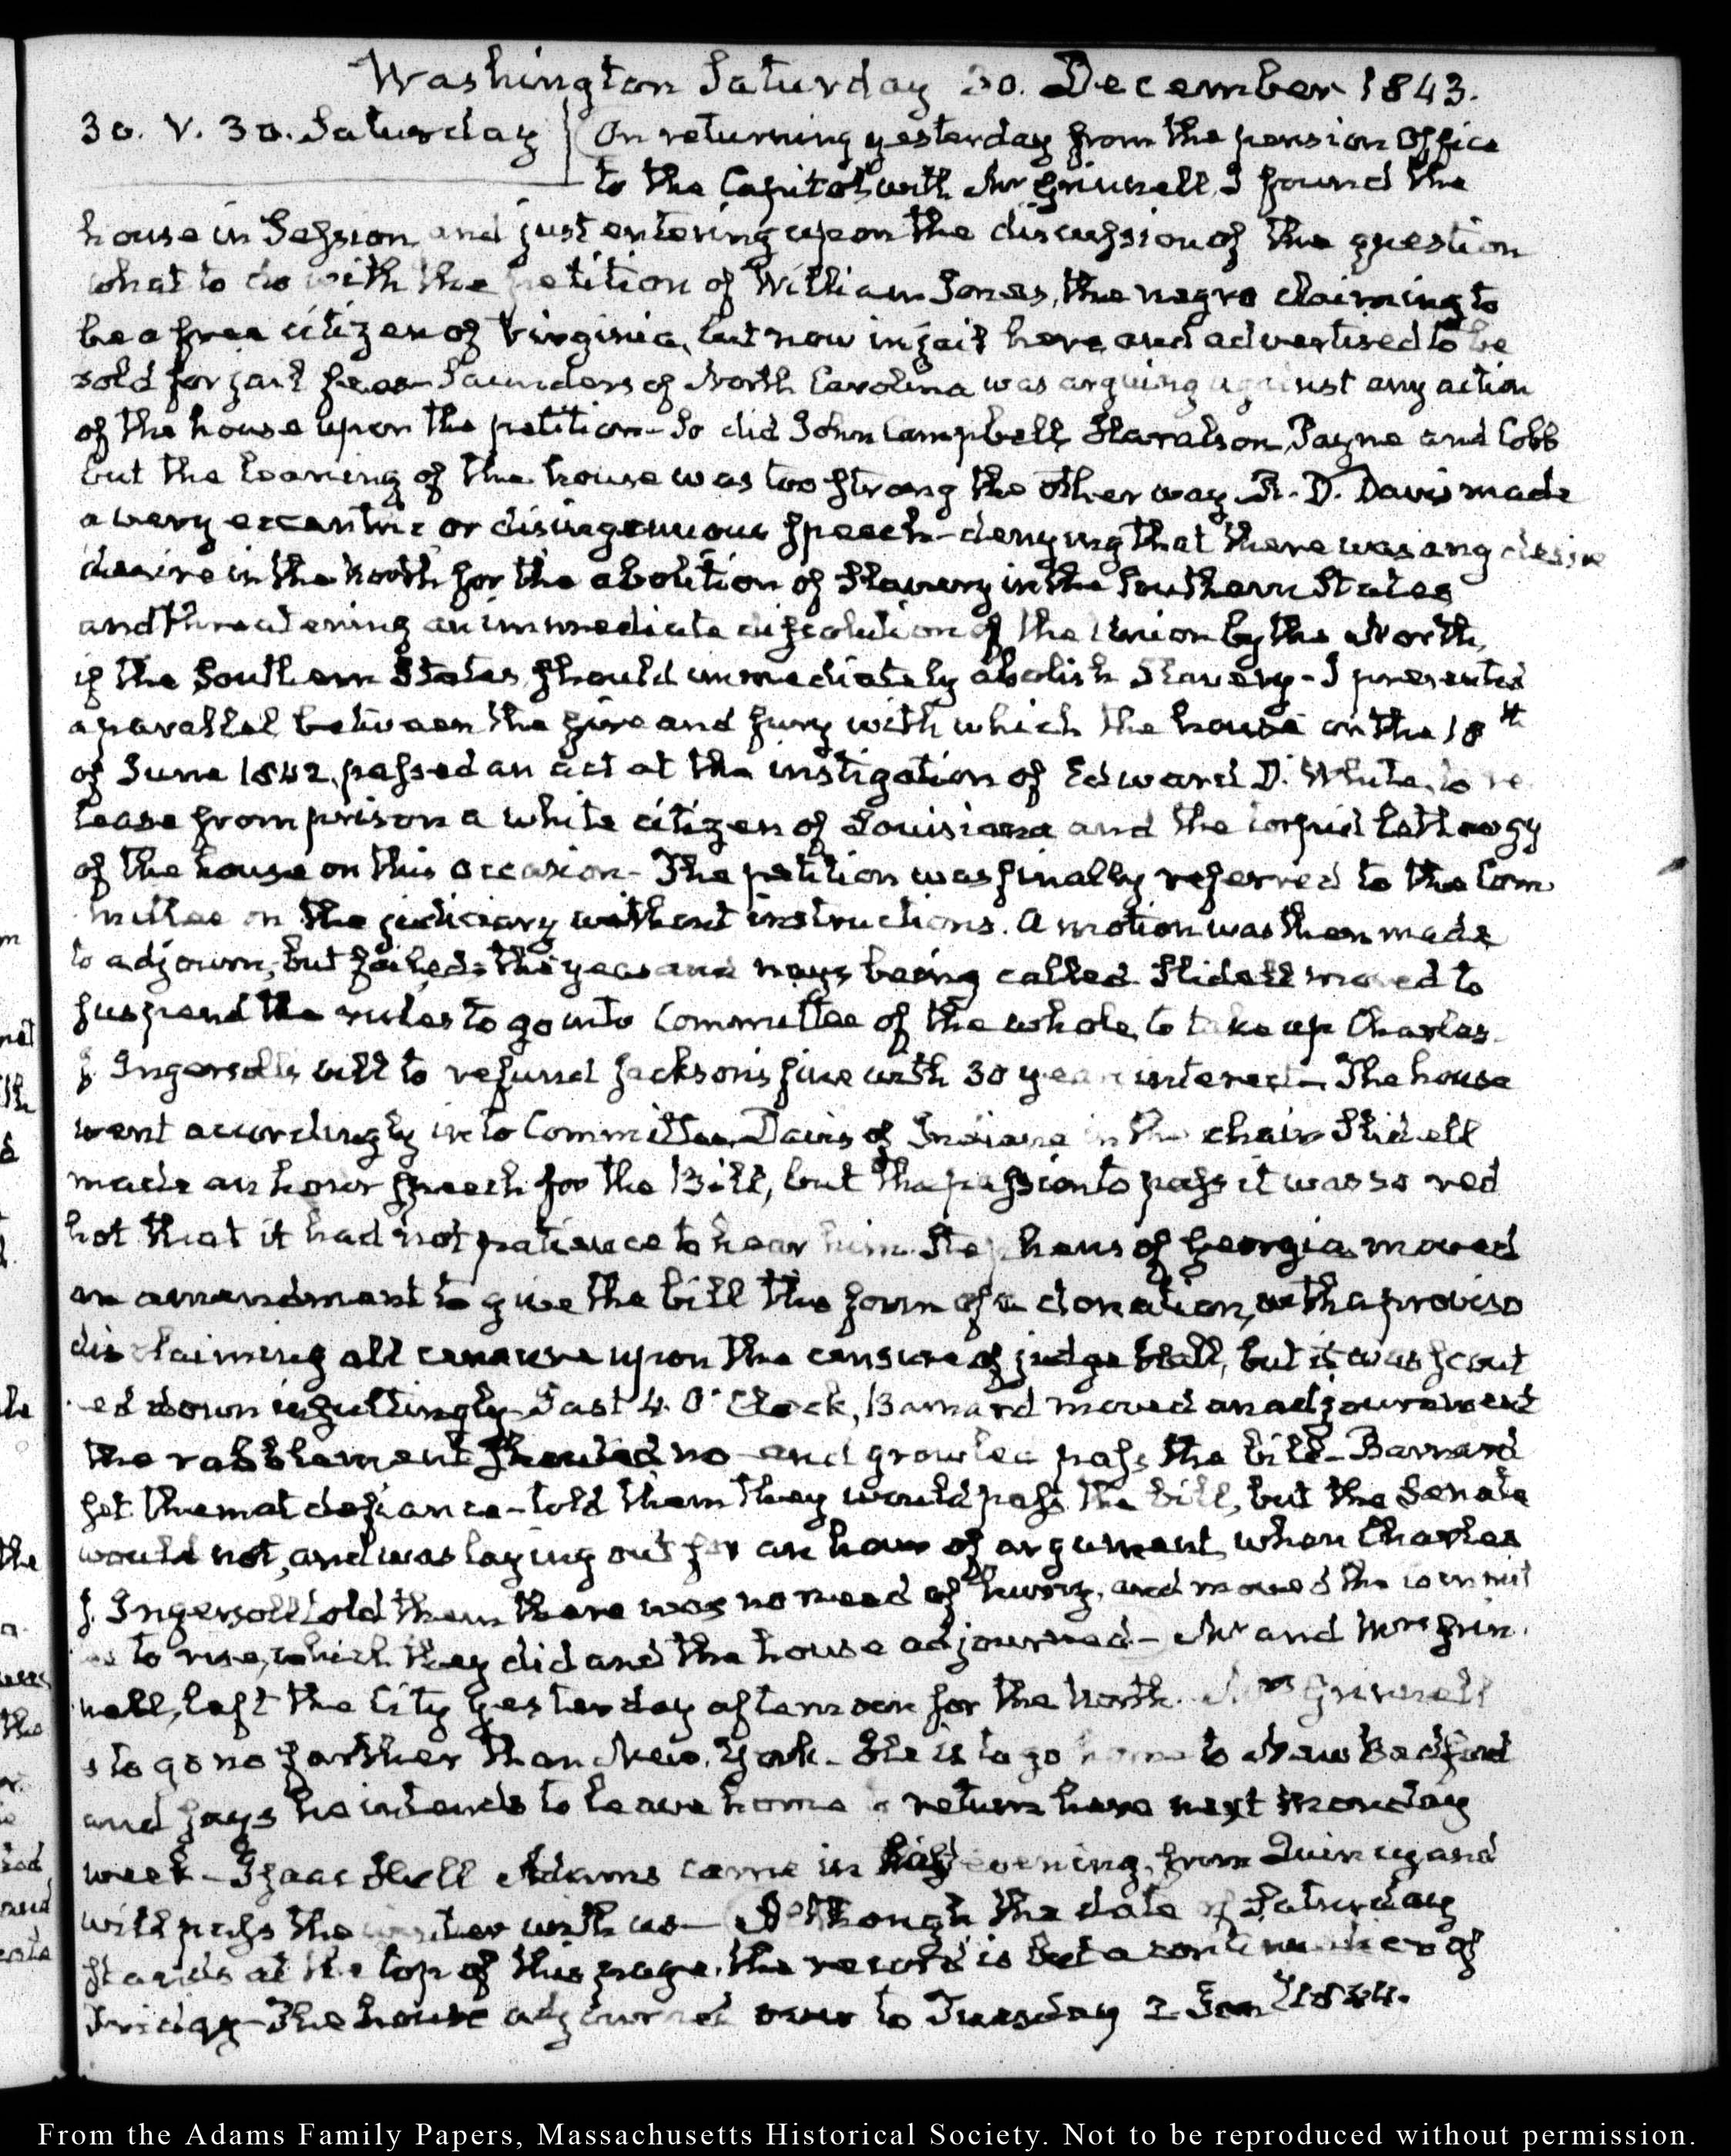 Washington Saturday 30. December 1843.
30. V. 30. Saturday On returning yesterday from the pension Office
to the Capitol with Mr Grinnell, I found the
house in Session and just entering upon the discussion of the question
what to do with the petition of William Jones, the negro claiming to
be a free citizen of Virginia, but now in jail here and advertised to be
sold for jail fees— Saunders of North Carolina was arguing against any action
of the house upon the petition— So did John Campbell, Haralson, Payne and Cobb
but the leaning of the house was too strong the other way. R. D. Davis made
a very eccentric or disingenuous speech— denying that there was any desire
desire in the North for the abolition of Slavery in the Southern States
and threatening an immediate dissolution of the Union by the North,
if the Southern States should immediately abolish Slavery— I presented
a parallel between the fire and fury with which the house on the 18th
of June 1842 passed an act at the instigation of Edward D. White, to re
lease from prison a white citizen of Louisiana and the torpid lethargy
of the house on this occasion— The petition was finally referred to the Com
mittee on the judiciary without instructions. A motion was then made
to adjourn, but failed; the yeas and nays being called. Slidell moved to
suspend the rules to go into Committee of the whole, to take up Charles
J. Ingersoll's bill to refund Jackson's fine with 30 years interest— The house
went accordingly into Committee, Davis of Indiana in the chair Slidell
made an hour speech for the Bill, but the passion to pass it was so red
hot that it had not patience to hear him. Stephens of Georgia moved
an amendment to give the bill the form of a donation, with a proviso
disclaiming all censure upon the censure of judge Hall, but it was scout
ed down insultingly— Past 4. O'Clock, Barnard moved an adjournment
the rabblement shouted no— and growled pass the bill— Barnard
set them at defiance— told them they would pass the bill, but the Senate
would not, and was laying out for an hour of argument, when Charles
J. Ingersoll told them there was no need of hurry, and moved the commit
ee to rise, which they did and the house adjourned— Mr and Mrs Grin
nell, left the City yesterday afternoon for the North. Mrs Grinnell
is to go no farther than New York— He is to go home to New Bedford
and says he intends to leave home to return here next Monday
week— Isaac Hull Adams came in evening, from Quincy and
will pass the winter with us— Although the date of Saturday
stands at the top of this page, the record is but a continuance of
Friday— The house adjourned over to Tuesday 2 Jany 1844.
From the Adams Family Papers, Massachusetts Historical Society. Not to be reproduced without permission.